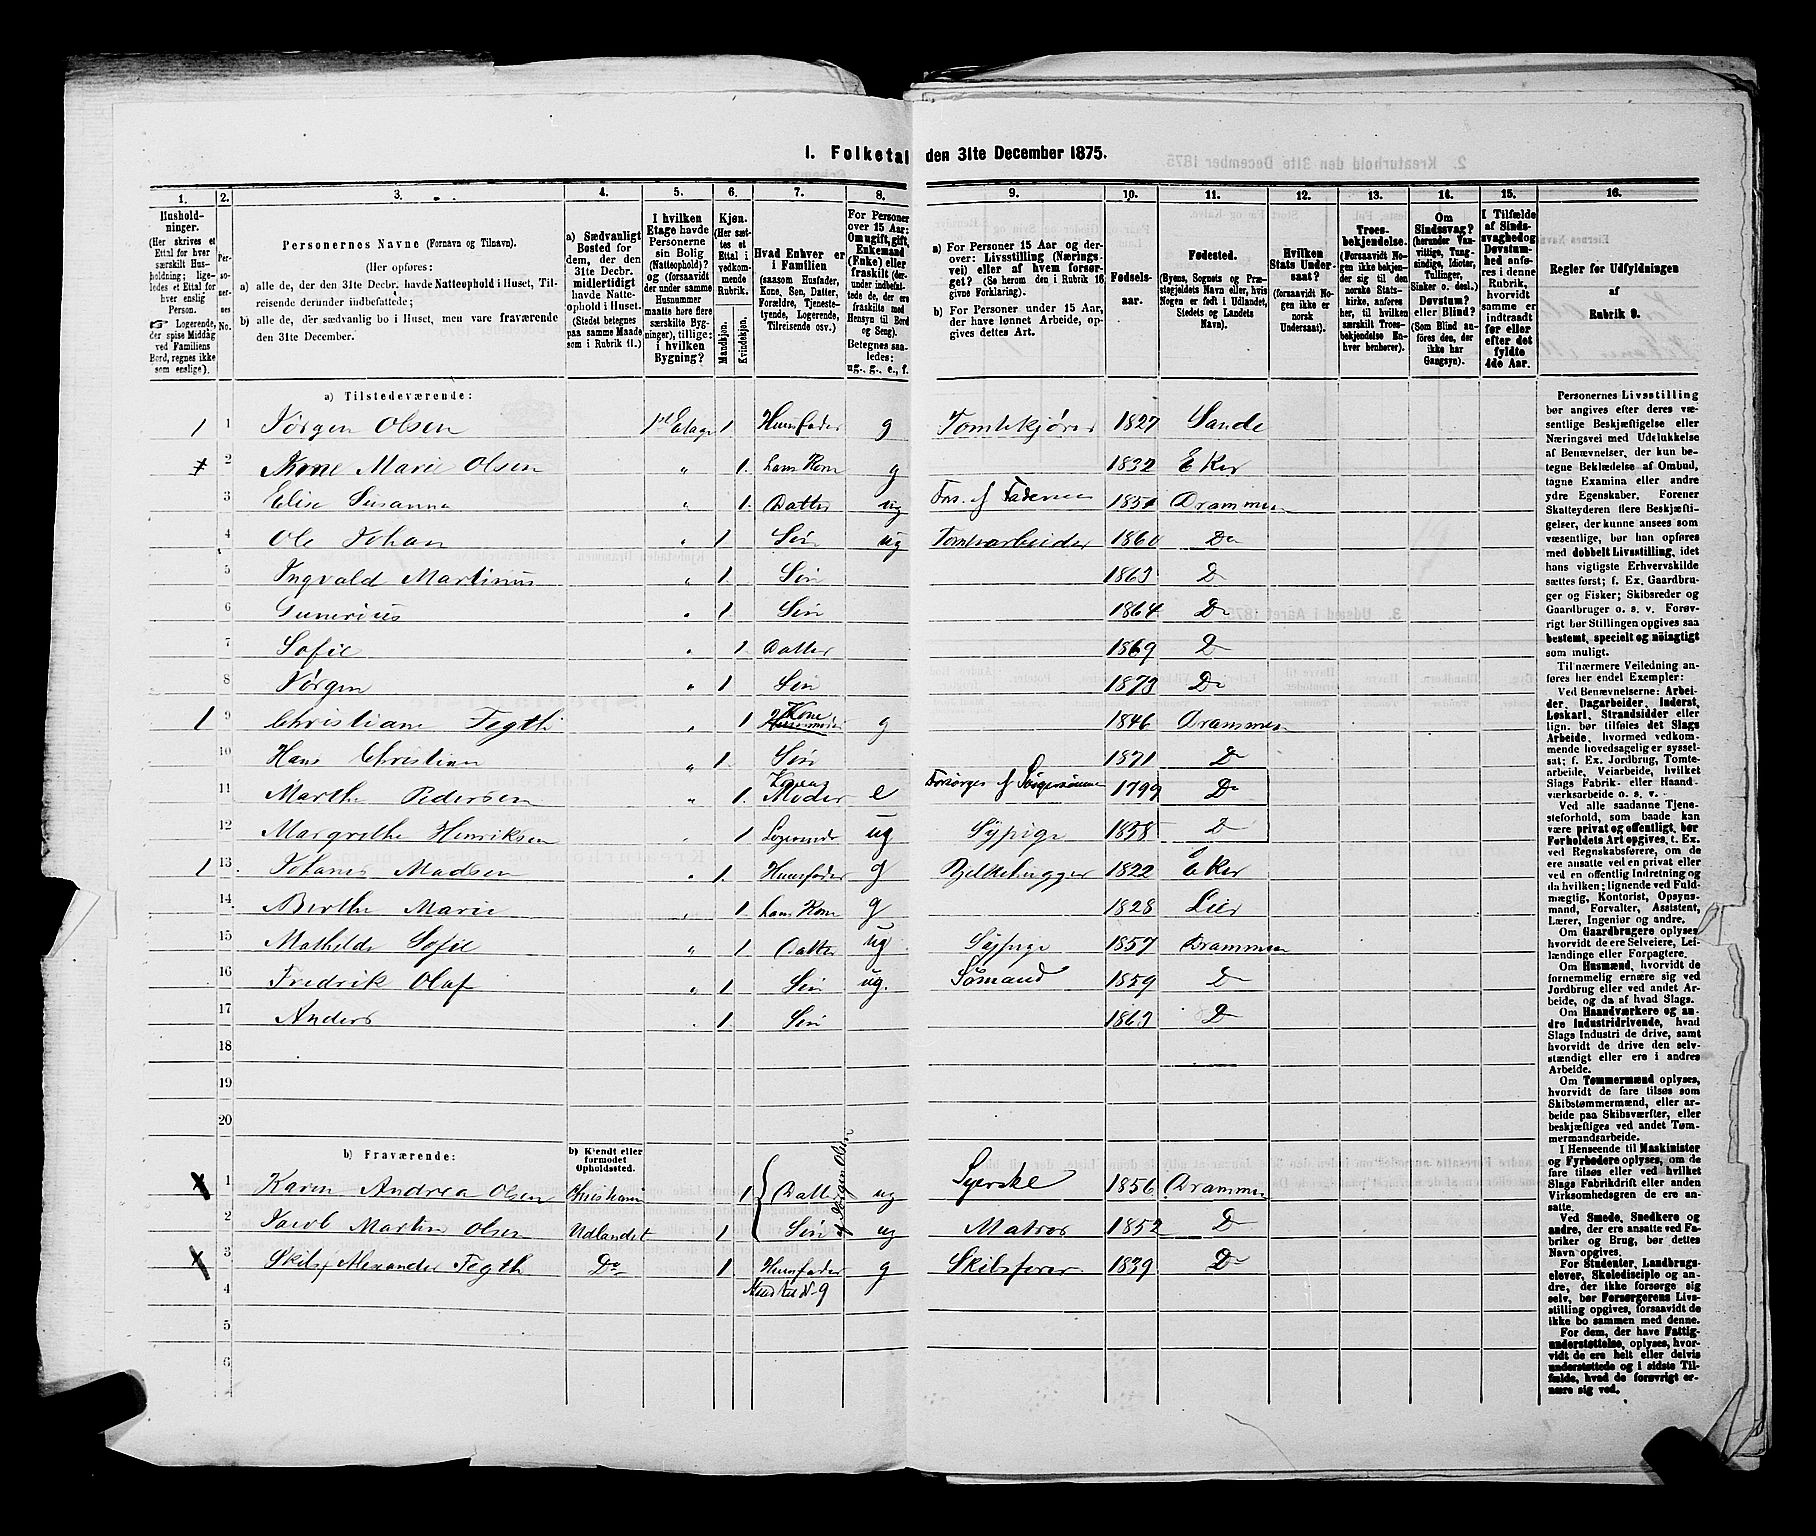 I. Folketal den 31te December 1875.
1. 2. 3. 4. 5. 6. 7. 8. 9. 10. 11. 12. 13. 14. 15. 16.
Husholdninger.
(Her skrives et Ettal for hver særskilt Husholdning; ligeledes et Ettal for hver enslig Person.
☞ Logerende, der spise Middag ved Familiens Bord, regnes ikke som enslige).
Personernes No.
Personernes Navne (Fornavn og Tilnavn).
(Her opføres:
a) alle de, der den 31te Decbr. havde Natteophold i Huset, Tilreisende derunder indbefattede;
b) alle de, der sædvanlig bo i Huset, men vare fraværende den 31te December.
a) Sædvanligt Bosted for dem, der den 31te Decbr. midlertidigt havde Natteophold i Huset.
(Stedet betegnes paa samme Maade som i Rubrik 11.)
I hvilken Etage havde Personerne sin Bolig (Natteophold)? og (forsaavidt der under samme Husnummer maatte høre flere særskilte Bygninger), tillige: i hvilken Bygning?
Kjøn.
(Her sættes et Ettal i vedkommende Rubrik.
Mandkjøn. Kvindekjøn.
Hvad Enhver er i Familien
(saasom Husfader, Kone, Søn, Datter, Forældre, Tjenestetyende, Logerende, Tilreisende osv.)
For Personer over 15 Aar: Om ugift, gift, Enkemand (Enke) eller fraskilt (derunder indbefattede de, der ere fraskilte med Hensyn til Bord og Seng).
Betegnes saaledes: ug., g., e., f.
a) For Personer 15 Aar og derover: Livsstilling (Næringsvei) eller af hvem forsørget? (Se herom den i Rubrik 16 givne Forklaring).
b) For Personer under 15 Aar, der have lønnet Arbeide, opgives dettes Art.
Fødselsaar.
Fødested.
(Byens, Sognets og Præstegjeldets Navn eller, hvis Nogen er født i Udlandet, Stedets og Landets Navn).
Hvilken Stats Undersaat?
(forsaavidt Nogen ikke er norsk Undersaat).
Troesbekjendelse.
(Forsaavidt Nogen ikke bekjender sig til den norske Statskirke, anføres her, til hvilken særskilt Troesbekjendelse Enhver henhører).
Om Sindssvag? (herunder Vanvittige, Tungsindige, Idioter, Tullinger, Sinker o. desl.)
Døvstum? eller Blind? (Som Blind anføres den, der ikke har Gangsyn).
I Tilfælde af Sindssvaghed og Døvstumhed anføres i denne Rubrik, hvorvidt samme er indtraadt før eller efter det fyldte 4de Aar.
Regler for Udfyldningen af Rubrik 9.
a) Tilstedeværende:
1 1 Jørgen Olsen 1st Etage 1. Huusfader g Tomtekjører 1827 Sande
2 Anne Marie Olsen " 1. hans Kone g 1832 Eker
3 Elise Susanna " 1. Datter ug Fors. af Faderen 1851 Drammen
4 Ole Johan " 1 Søn ug Tomtearbeider 1860 Do
5 Ingvald Martinus " 1. Søn 1863 Do
6 Gunerius " 1. Søn 1864 Do
7 Sofie " 1. Datter 1869 Do
8 Jørgen " 1 Søn 1873 Do
1 9 Christiane Fegth " 1 Kone g 1846 Drammen
10 Hans Christian " 1. Søn 1871 Do
11 Marthe Pedersen " 1. Konens Moder e Forsørges af Svigersønnen 1799 Do
12 Margrethe Henriksen " 1 Logerende ug Sypige 1858 Do
1 13 Johanes Madsen " 1. Huusfader g Bjelkehugger 1822 Eker
14 Berthe Marie " 1. hans Kone g 1828 Lier
15 Mathilde Sofie " 1 Datter ug. Sypige 1857 Drammen
16 Fredrik Olaf " 1 Søn ug. Sømand 1859 Do
17 Anders 1. Søn 1863 Do
18
19
20
b) Fraværende:
b) Kjendt eller formodet Opholdssted.
1 Karen Andrea Olsen Christiania 1 Datter ug Syerske 1856 Drammen
af Jørgen Olsen
2 Jacob Martin Olsen Udlandet 1 Søn ug Matros 1852 Do
3 Skilsf Alexander Fegth Do 1 Huusfader g Skibsfører 1839 Do
4 9
5
6
Personernes Livsstilling bør angives efter deres væsentlige Beskjæftigelse eller Næringsvei med Udelukkelse af Benævnelser, der kun betegne Beklædelse af Ombud, tagne Examina eller andre ydre Egenskaber. Forener Skatteyderen flere Beskjæftigelser, der kunne ansees som væsentlige, bør han opføres med dobbelt Livsstilling, idet hans vigtigste Erhvervskilde sættes først; f. Ex. Gaardbruger og Fisker; Skibsreder og Gaardbruger o. s. v. Forøvrigt bør Stillingen opgives saa bestemt, specielt og nøiagtigt som muligt.
Til nærmere Veiledning anføres her endel Exempler:
Ved Benævnelserne: Arbeider, Dagarbeider, Inderst, Løskarl, Strandsidder eller lign. bør tilføies det Slags Arbeide, hvormed vedkommende hovedsagelig er sysselsat; f. Ex. Jordbrug, Tomtearbeide, Veiarbeide, hvilket Slags Fabrik- eller Haandværksarbeide o. s. v.
Ved alle saadanne Tjenesteforhold, som baade kan være privat og offentligt, bør Forholdets Art opgives, t. Ex. ved Regnskabsførere, om de ere ansatte ved en privat eller ved en offentlig Indretning og da hvilken; lignende ved Fuldmægtig, Kontorist, Opsynsmand, Forvalter, Assistent, Lærer, Ingeniør og andre.
Om Gaardbrugere oplyses, hvorvidt de ere Selveiere, Leilændinge eller Forpagtere.
Om Husmænd, hvorvidt de fornemmelig ernære sig ved Jordbrug eller ved andet Arbeide, og da af hvad Slags.
Om Haandværkere og andre Industridrivende, hvad Slags Industri de drive, samt hvorvidt de drive den selvstændigt eller ere i andres Arbeide.
Om Tømmermænd oplyses, hvorvidt de fare tilsøs som Skibstømmermænd, eller arbeide paa Skibsværfter, eller beskjæftiges ved andet Tømmermandsarbeide.
I Henseende til Maskinister og Fyrbødere oplyses, om de fare tilsøs eller ved hvilket Slags Fabrikdrift eller anden Virksomhedsgren de ere ansatte.
Ved Smede, Snedkere og andre, der ere ansatte ved Fabriker og Brug, bør dettes Navn opgives.
For Studenter, Landbrugselever, Skoledisciple og andre, der ikke forsørge sig selv, bør Forsørgerens Livsstilling opgives, forsaavidt de ikke bo sammen med denne.
For dem, der have Fattigunderstøttelse, oplyses, hvorvidt de ere helt eller delvis understøttede og i sidste Tilfælde, hvad de forøvrigt ernære sig ved.